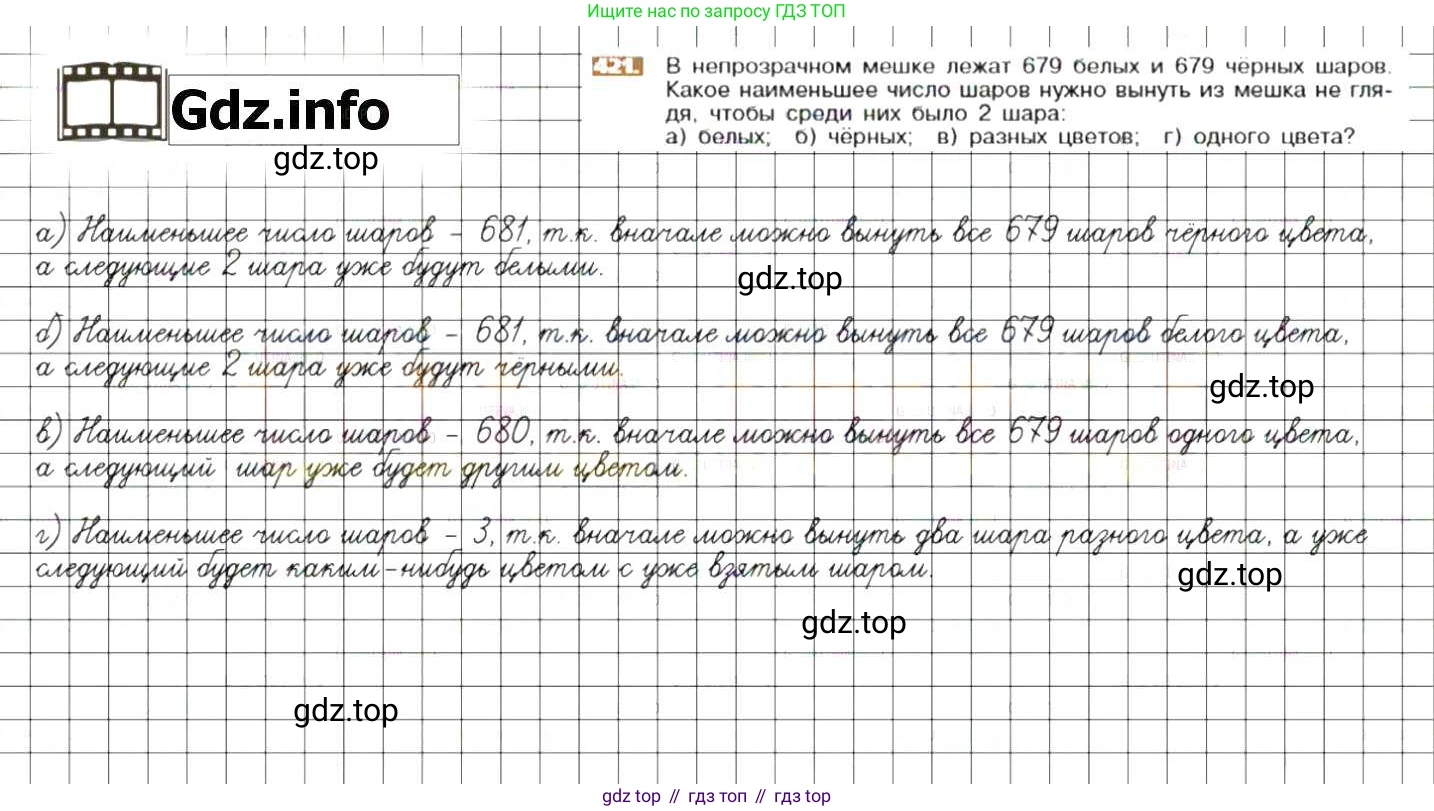 Ищите нас по запросу ГДЗ ТОП
421. В непрозрачном мешке лежат 679 белых и 679 чёрных шаров.
Какое наименьшее число шаров нужно вынуть из мешка не гля-
дя, чтобы среди них было 2 шара:
а) белых; б) чёрных; в) разных цветов; г) одного цвета?
Gdz.info
gdz.top
а) Наименьшее число шаров - 681, т.к. вначале можно вынуть все 679 шаров чёрного цвета,
а следующие 2 шара уже будут белыми.
gdz.top
б) Наименьшее число шаров - 681, т.к. вначале можно вынуть все 679 шаров белого цвета,
а следующие 2 шара уже будут чёрными.
gdz.top
в) Наименьшее число шаров - 680, т.к. вначале можно вынуть все 679 шаров одного цвета,
а следующий шар уже будет другим цветом.
г) Наименьшее число шаров - 3, т.к. вначале можно вынуть два шара разного цвета, а уже
следующий будет каким-нибудь цветом с уже взятым шаром.
gdz.top
gdz.top
gdz.top
gdz top // гдз топ // гдз top